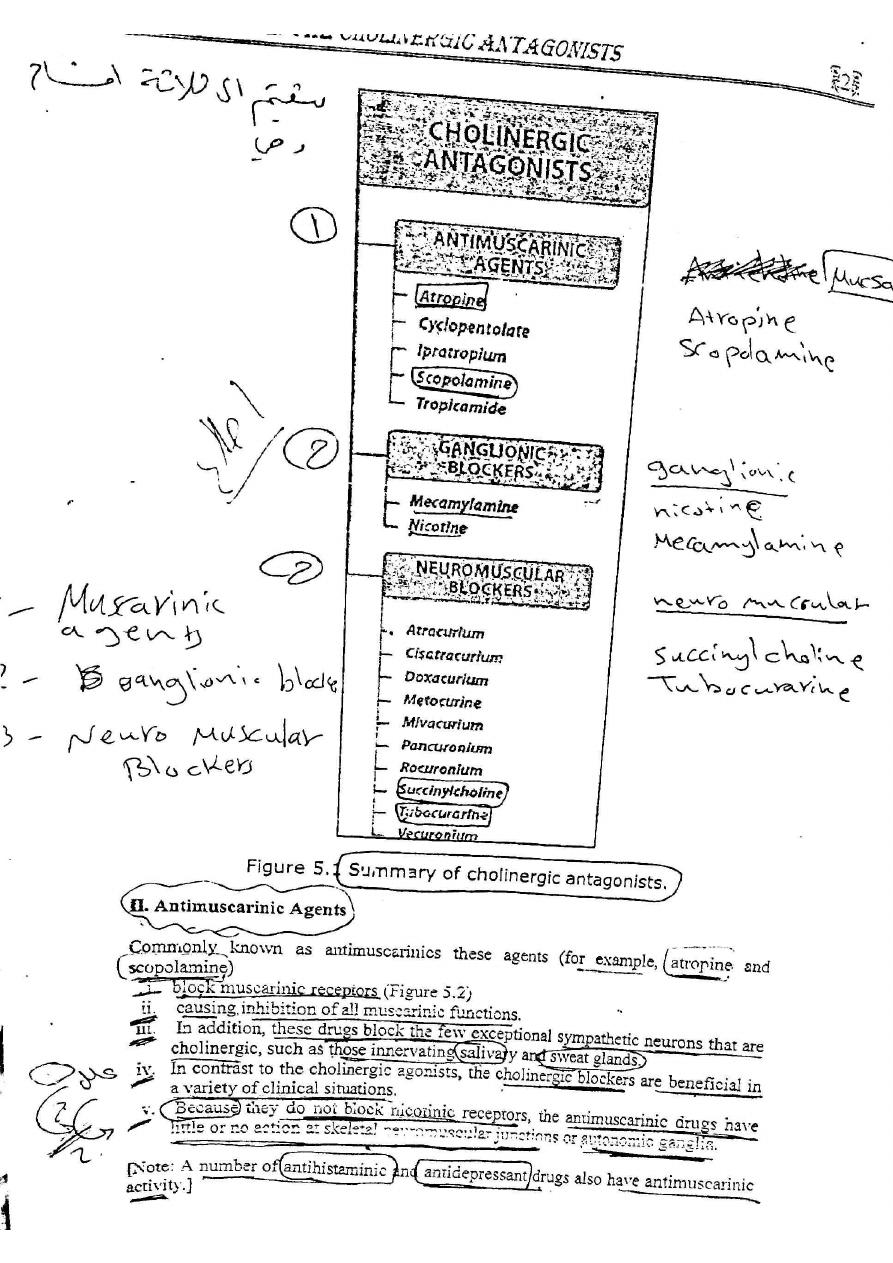 THE CHOLINERGIC ANTAGONISTS
CHOLINERGIC
ANTAGONISTS
1
ANTIMUSCARINIC
AGENTS
Atropine
Cyclopentolate
Ipratropium
Scopolamine
Tropicamide
2
GANGLIONIC
BLOCKERS
Mecamylamine
Nicotine
NEUROMUSCULAR
BLOCKERS
Atracurium
Cisatracurium
Doxacurium
Metocurine
Mivacurium
Pancuronium
Rocuronium
Succinylcholine
Tubocurarine
Vecuronium
Atropine
Scopolamine
ganglionic
nicotine
Mecamylamine
neuro muscular
Succinylcholine
Tubocurarine
- Musrarinic
agents
- ganglionic block
3 - Neuro Muscular
Blockers
Figure 5.1 Summary of cholinergic antagonists.
II. Antimuscarinic Agents
Commonly known as antimuscarinics these agents (for example, atropine and
scopolamine)
i. block muscarinic receptors (Figure 5.2)
ii. causing inhibition of all muscarinic functions.
iii. In addition, these drugs block the few exceptional sympathetic neurons that are
cholinergic, such as those innervating salivary and sweat glands.
iv. In contrast to the cholinergic agonists, the cholinergic blockers are beneficial in
a variety of clinical situations.
v. Because they do not block nicotinic receptors, the antimuscarinic drugs have
little or no action at skeletal neuromuscular junctions or autonomic ganglia.
[Note: A number of antihistaminic and antidepressant drugs also have antimuscarinic
activity.]